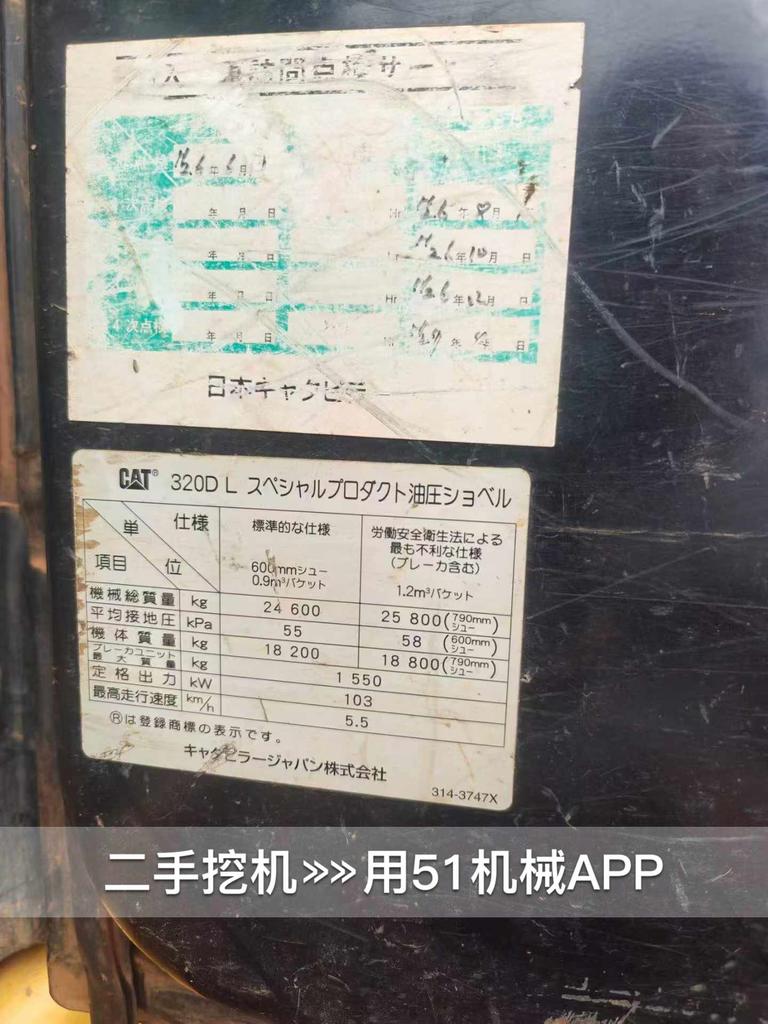 訪問点検サー
年 6 月
年 月 日 Hr 年 8 月
年 月 日 年 10 月 日
年 月 日 Hr 年 12 月 日
4 次点検 年 月 日 年 月 日
日本キャタピラー
CAT® 320D L スペシャルプロダクト油圧ショベル
単位 仕様 項目
標準的な仕様
600mmシュー
0.9m³バケット
労働安全衛生法による
最も不利な仕様
(ブレーカ含む)
1.2m³バケット
機械総質量 kg 24 600 25 800(790mmシュー)
平均接地圧 kPa 55 58 (600mmシュー)
機体質量 kg 18 200 18 800(790mmシュー)
ブレーカユニット最大質量 kg 1 550
定格出力 kW 103
最高走行速度 km/h 5.5
®は登録商標の表示です。
キャタピラージャパン株式会社
314-3747X
二手挖机»»用51机械APP